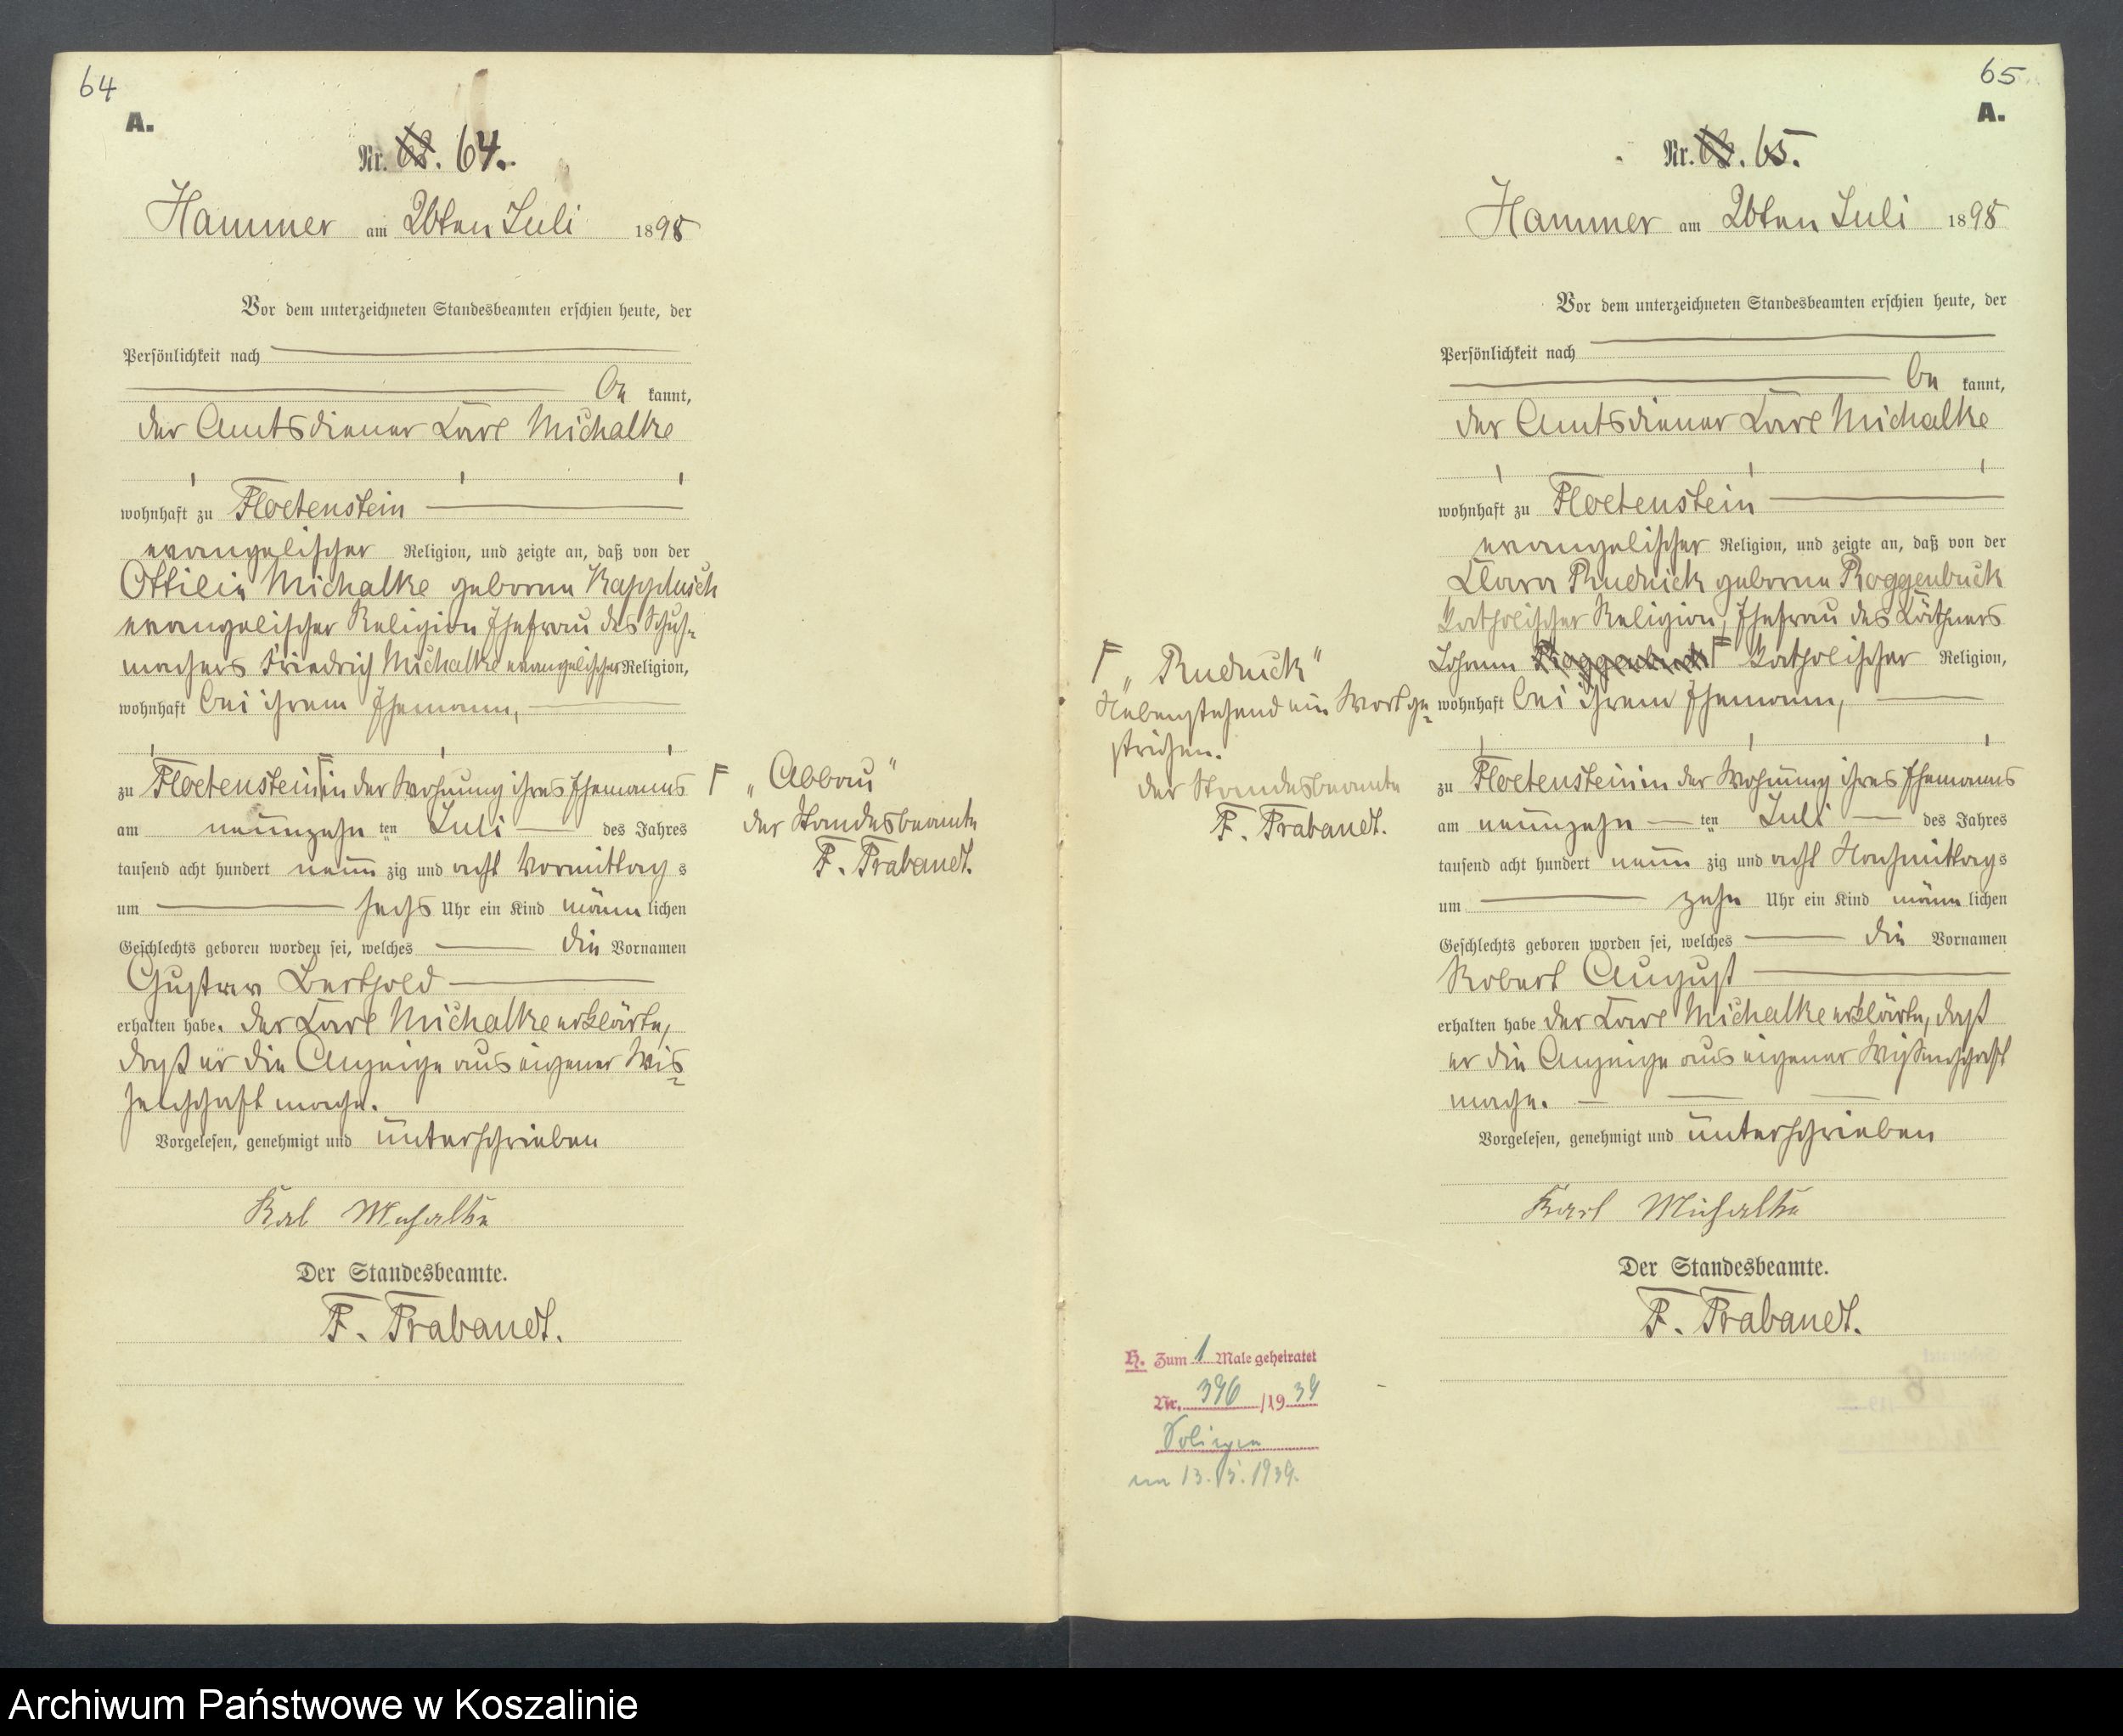 64
A.
Nr. 64.
Hammer am 26ten Juli 1898
Vor dem unterzeichneten Standesbeamten erschien heute, der
Persönlichkeit nach
be kannt,
der Amtsdiener Carl Michalke
wohnhaft zu Floetenstein
evangelischer Religion, und zeigte an, daß von der
Ottilie Michalke geborne Kappdusch
evangelischer Religion Ehefrau des Schuh-
machers Friedrich Michalke evangelischer Religion,
wohnhaft bei ihrem Ehemann,
zu Floetenstein F in der Wohnung ihres Ehemanns
am neunzehn ten Juli des Jahres
tausend acht hundert neun zig und acht Vormittag s
um sechs Uhr ein Kind männ lichen
Geschlechts geboren worden sei, welches die Vornamen
Gustav Berthold
erhalten habe. Der Carl Michalke erklärte,
daß er die Anzeige aus eigener Wis-
senschaft mache.
Vorgelesen, genehmigt und unterschrieben
Karl Michalke
Der Standesbeamte.
F. Prabandt.
F „Abbau“
der Standesbeamte
F. Prabandt.
65
A.
Nr. 65.
Hammer am 26ten Juli 1898
Vor dem unterzeichneten Standesbeamten erschien heute, der
Persönlichkeit nach
be kannt,
der Amtsdiener Carl Michalke
wohnhaft zu Floetenstein
evangelischer Religion, und zeigte an, daß von der
Clara Rudnick geborne Roggenbuck
katholischer Religion, Ehefrau des Käthners
Johann Roggenbuck F katholischer Religion,
wohnhaft bei ihrem Ehemann,
zu Floetenstein in der Wohnung ihres Ehemanns
am neunzehn ten Juli des Jahres
tausend acht hundert neun zig und acht Nachmittag s
um zehn Uhr ein Kind männ lichen
Geschlechts geboren worden sei, welches die Vornamen
Robert August
erhalten habe Der Carl Michalke erklärte, daß
er die Anzeige aus eigener Wissenschaft
mache.
Vorgelesen, genehmigt und unterschrieben
Karl Michalke
Der Standesbeamte.
F. Prabandt.
F „Rudnick“
Nebenstehend ein Wort ge-
strichen.
der Standesbeamte
F. Prabandt.
H. Zum 1 Male geheiratet
Nr. 396 /19 39
Solingen
am 13. 5. 1939.
Archiwum Państwowe w Koszalinie